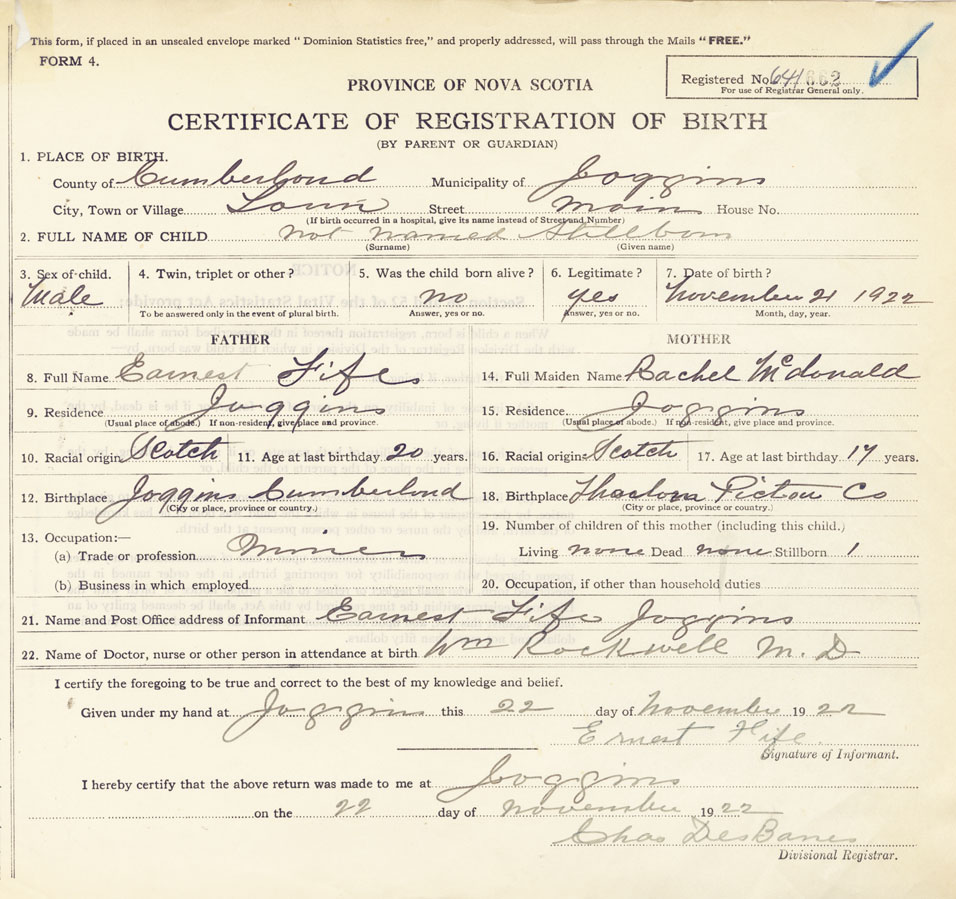 This form, if placed in an unsealed envelope marked " Dominion Statistics free," and properly addressed, will pass through the Mails " FREE."
FORM 4.
Registered No. 641 662
For use of Registrar General only.
PROVINCE OF NOVA SCOTIA
CERTIFICATE OF REGISTRATION OF BIRTH
(BY PARENT OR GUARDIAN)
1. PLACE OF BIRTH.
County of Cumberlond Municipality of Joggins
City, Town or Village Town Street Main House No.
(If birth occurred in a hospital, give its name instead of Street and Number)
2. FULL NAME OF CHILD not named Stillborn
(Surname) (Given name)
3. Sex of child. 4. Twin, triplet or other? 5. Was the child born alive? 6. Legitimate? 7. Date of birth?
Male no yes November 21 1922
To be answered only in the event of plural birth. Answer, yes or no. Answer, yes or no. Month, day, year.
FATHER MOTHER
8. Full Name Earnest Fife 14. Full Maiden Name Rachel McDonald
9. Residence Joggins 15. Residence Joggins
(Usual place of abode.) If non-resident, give place and province. (Usual place of abode.) If non-resident, give place and province.
10. Racial origin Scotch 11. Age at last birthday 20 years. 16. Racial origin Scotch 17. Age at last birthday 17 years.
12. Birthplace Joggins Cumberlond 18. Birthplace Pictou Co
(City or place, province or country.) (City or place, province or country.)
13. Occupation:— 19. Number of children of this mother (including this child.)
(a) Trade or profession Miner Living none Dead none Stillborn 1
(b) Business in which employed 20. Occupation, if other than household duties
21. Name and Post Office address of Informant Earnest Fife Joggins
22. Name of Doctor, nurse or other person in attendance at birth Wm Rockwell M. D
I certify the foregoing to be true and correct to the best of my knowledge and belief.
Given under my hand at Joggins this 22 day of November 1922
Ernest Fife
Signature of Informant.
I hereby certify that the above return was made to me at Joggins
on the 22 day of November 1922
Chas DesBarres
Divisional Registrar.